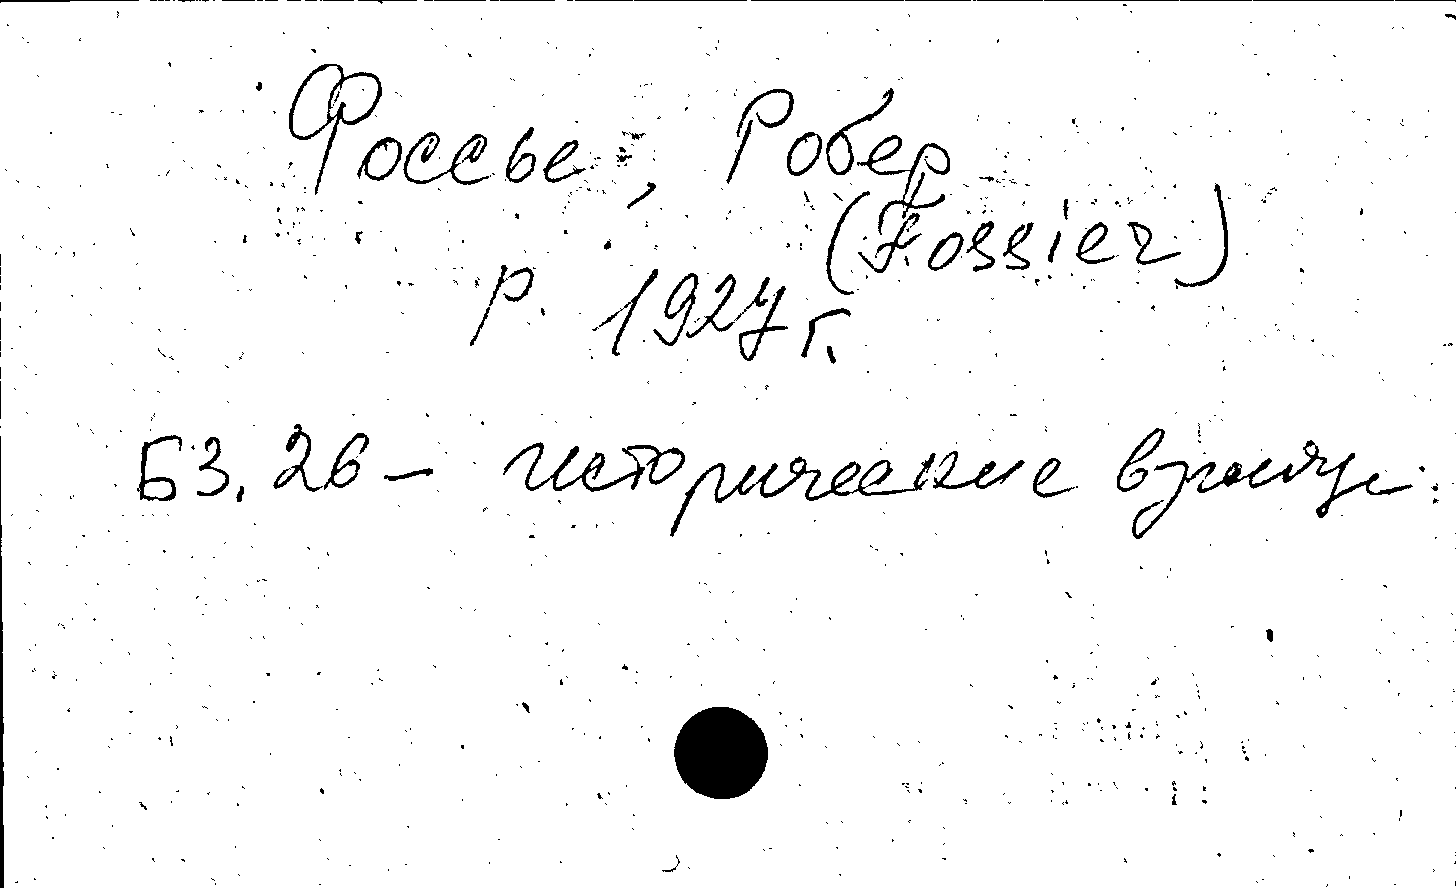 Фоссье, Робер
(Fossier)
р. 1927 г.
Б3.26 – исторические взгляды.